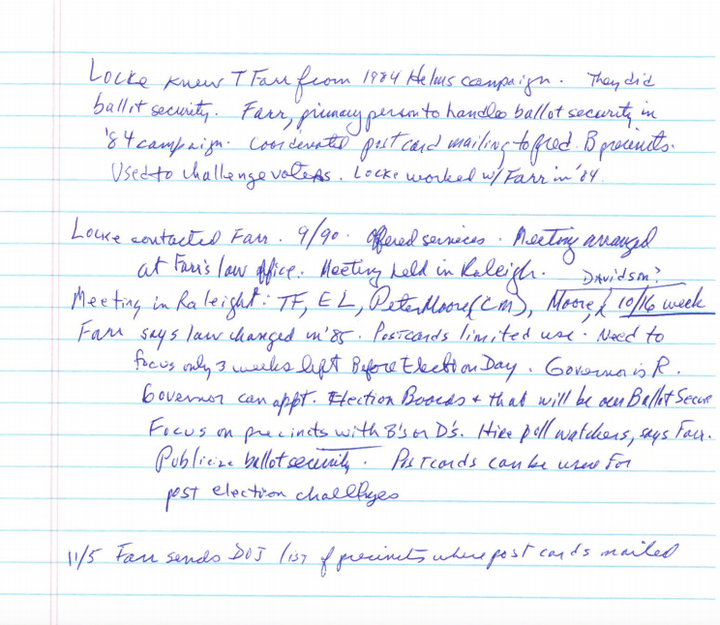 Locke knew T Farr from 1984 Helms campaign. They did
ballot security. Farr, primary person to handle ballot security in
'84 campaign. Coordinated post card mailing to pred. B precincts.
Used to challenge voters. Locke worked w/ Farr in '84.
Locke contacted Farr. 9/90. Offered services. Meeting arranged
at Farr's law office. Meeting held in Raleigh.
Davidson?
Meeting in Raleigh: TF, EL, Peter Moore (CM), Moore, 10/16 week
Farr says law changed in '85. Postcards limited use. Need to
focus only 3 weeks left Before Election Day. Governor is R.
Governor can appt. Election Boards + that will be our Ballot Secur
Focus on precincts with B's or D's. Hire poll watchers, says Farr.
Publicize ballot security. Postcards can be used for
post election challenges
11/5 Farr sends DOJ list of precincts where post cards mailed